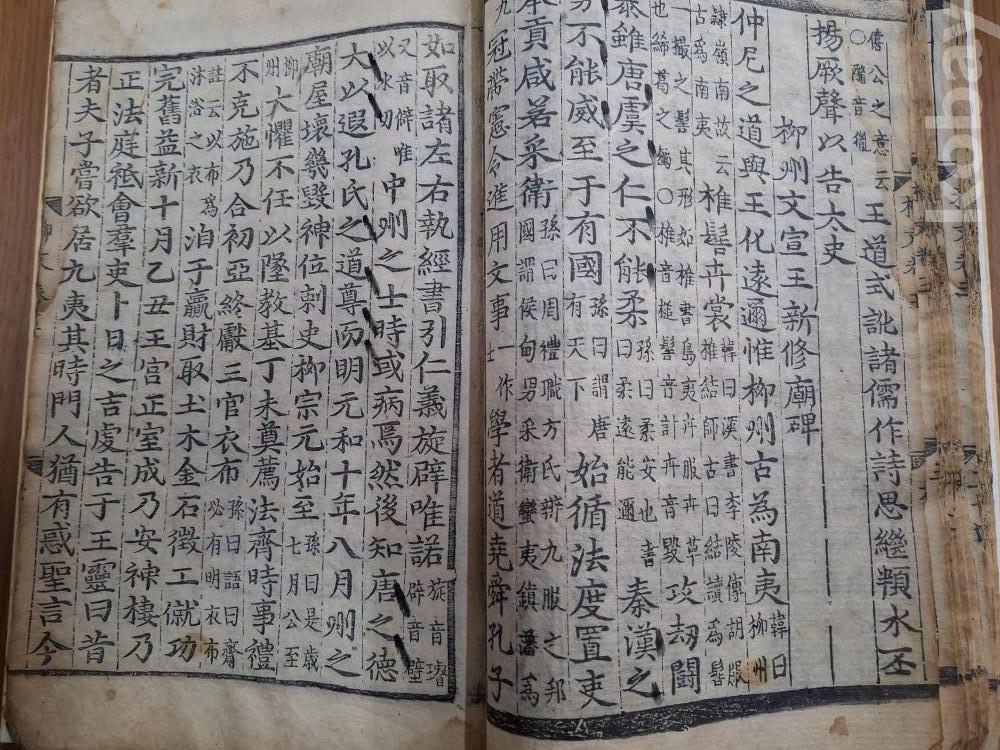 僖公之意云
〇醯音
王道式訛諸儒作詩思繼頖水丕
揚厥聲以告太史
柳州文宣王新修廟碑
仲尼之道與王化遠邇惟柳州古為南夷
韓曰
柳州
隷嶺南故云
古為南夷
椎髻卉裳
韓曰漢書李陵傳胡服
椎結師古曰結讀為髻
一撮之髻其形如椎書島夷卉服卉草
也絺葛之屬〇椎音槌髻音計卉音毀
攻刼鬪
暴雖唐虞之仁不能柔
孫曰柔安也書
曰柔遠能邇
秦漢之
勇不能威至于有國
孫曰謂唐
有天下
始循法度置吏
奉貢咸若采衛
孫曰周禮職方氏辨九服之邦
國謂侯甸男采衛蠻夷鎮藩為
九
冠帶憲令進用文事
一作
士
學者道堯舜孔子
如取諸左右執經書引仁義旋辟唯諾
旋音璿
辟音壁
又音僻唯
以水切
中州之士時或病焉然後知唐之德
大以遐孔氏之道尊而明元和十年八月州之
廟屋壞幾毀神位刺史柳宗元始至
孫曰是歲
七月公至
柳
州
大懼不任以墜教基丁未奠薦法齊時事禮
不克施乃合初亞終獻三官衣布
孫曰語曰齊
必有明衣布
註云以布為
沐浴之衣
洎于羸財取土木金石徵工僦功
完舊益新十月乙丑王宮正室成乃安神棲乃
正法庭祗會羣吏卜日之吉虔告于王靈曰昔
者夫子嘗欲居九夷其時門人猶有惑聖言今
kobay